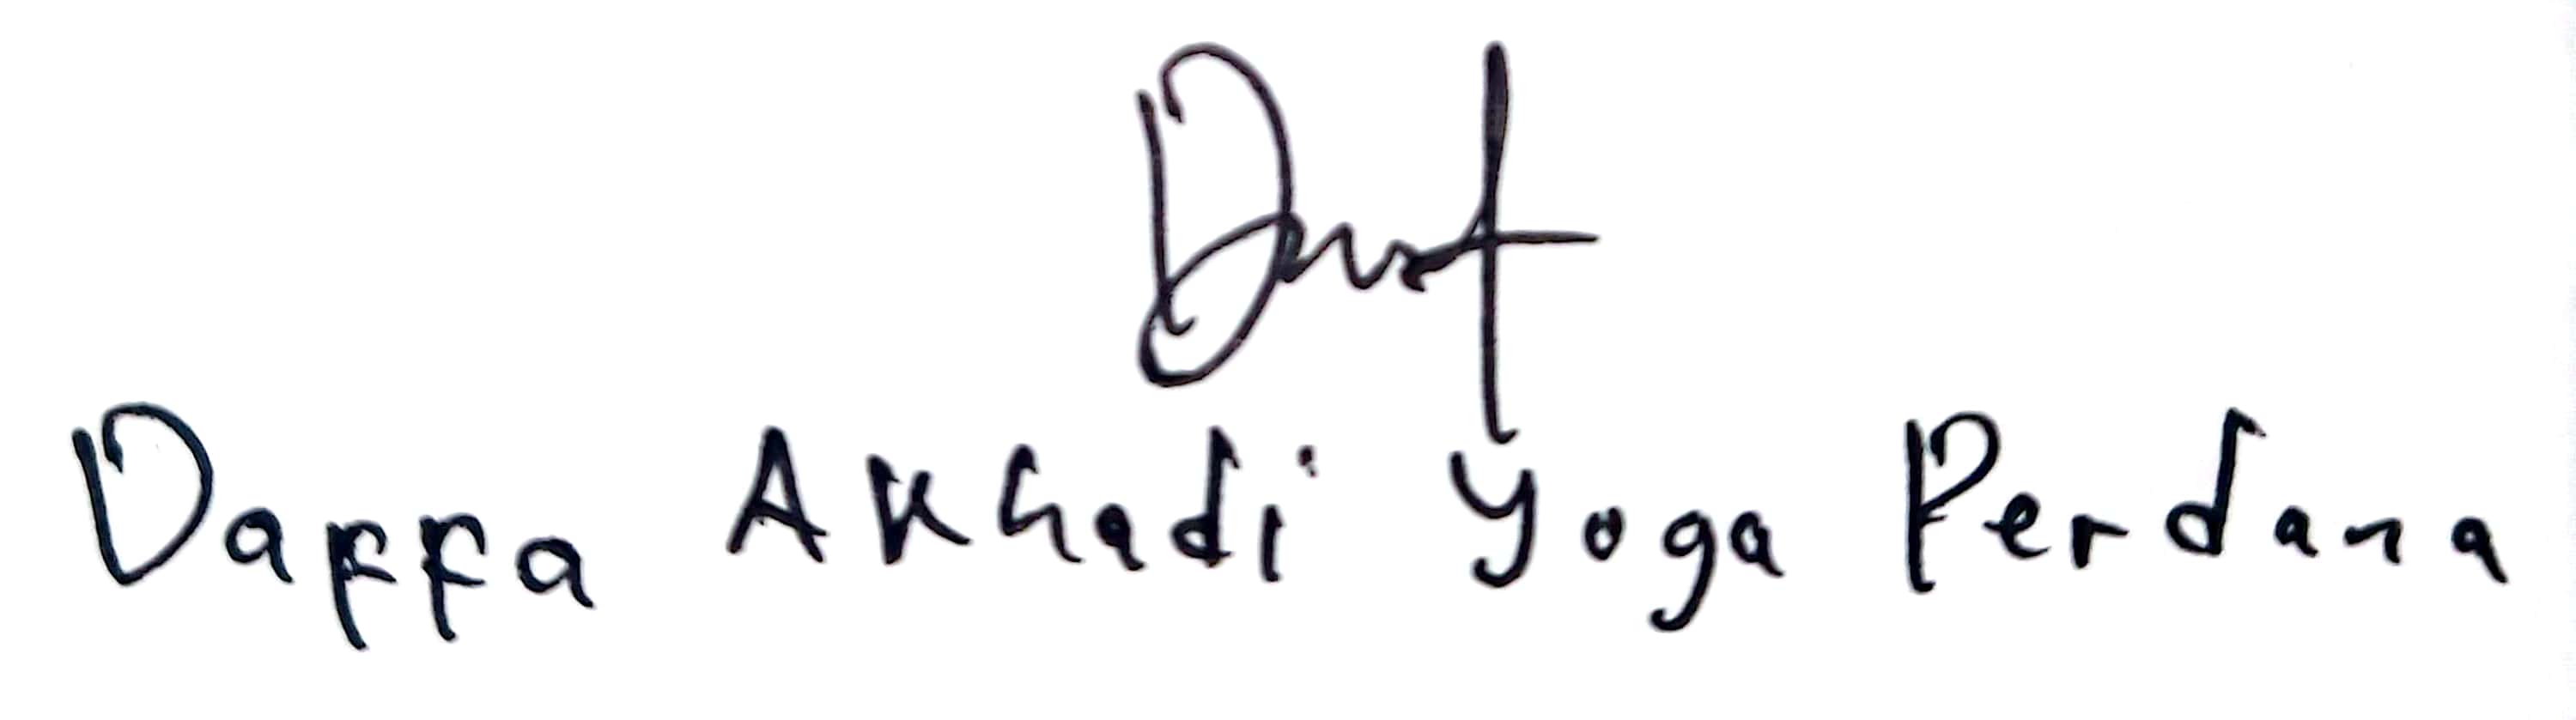 Daffa Akhadi Yoga Perdana